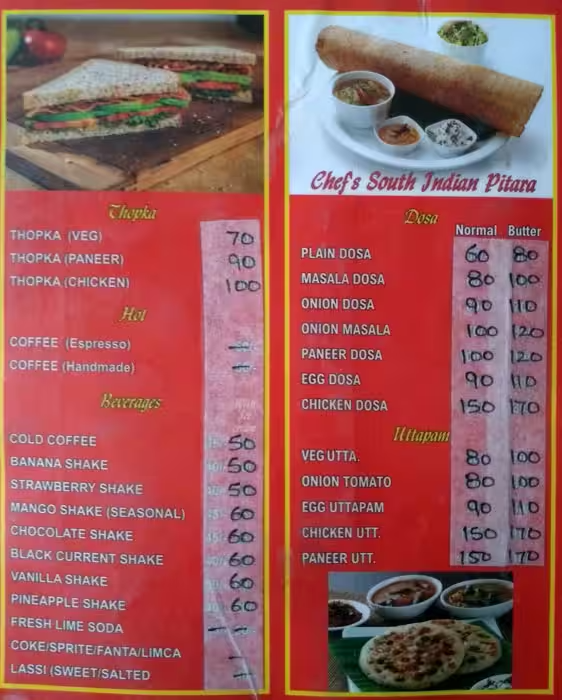 Thopka
THOPKA (VEG) 70
THOPKA (PANEER) 90
THOPKA (CHICKEN) 100
Hot
COFFEE (Espresso)
COFFEE (Handmade)
Beverages
COLD COFFEE 50
BANANA SHAKE 50
STRAWBERRY SHAKE 50
MANGO SHAKE (SEASONAL) 60
CHOCOLATE SHAKE 60
BLACK CURRENT SHAKE 60
VANILLA SHAKE 60
PINEAPPLE SHAKE 60
FRESH LIME SODA
COKE/SPRITE/FANTA/LIMCA
LASSI (SWEET/SALTED
Chef's South Indian Pitara
Dosa
Normal Butter
PLAIN DOSA 60 80
MASALA DOSA 80 100
ONION DOSA 90 110
ONION MASALA 100 120
PANEER DOSA 100 120
EGG DOSA 90 110
CHICKEN DOSA 150 170
Uttapam
VEG UTTA. 80 100
ONION TOMATO 80 100
EGG UTTAPAM 90 110
CHICKEN UTT. 150 170
PANEER UTT. 150 170